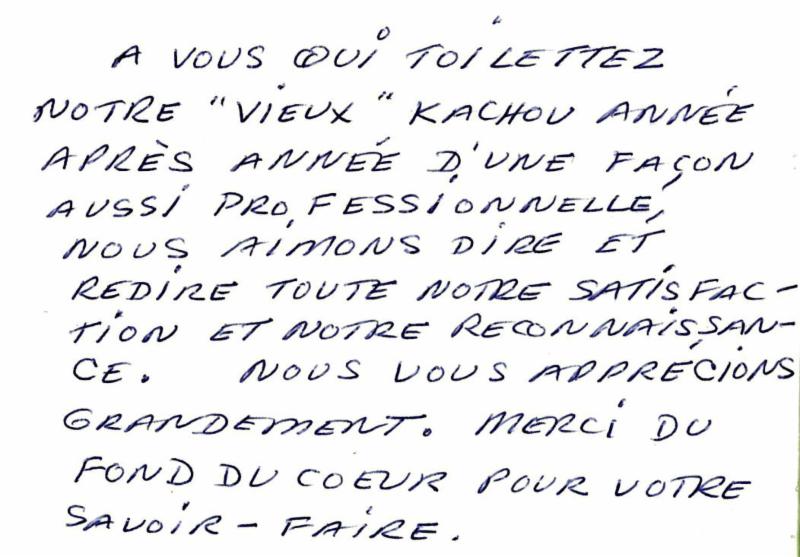 A VOUS QUI TOILETTEZ
NOTRE "VIEUX" KACHOU ANNÉE
APRÈS ANNÉE D'UNE FAÇON
AUSSI PROFESSIONNELLE,
NOUS AIMONS DIRE ET
REDIRE TOUTE NOTRE SATISFAC-
TION ET NOTRE RECONNAISSAN-
CE. NOUS VOUS APPRÉCIONS
GRANDEMENT. MERCI DU
FOND DU COEUR POUR VOTRE
SAVOIR-FAIRE.